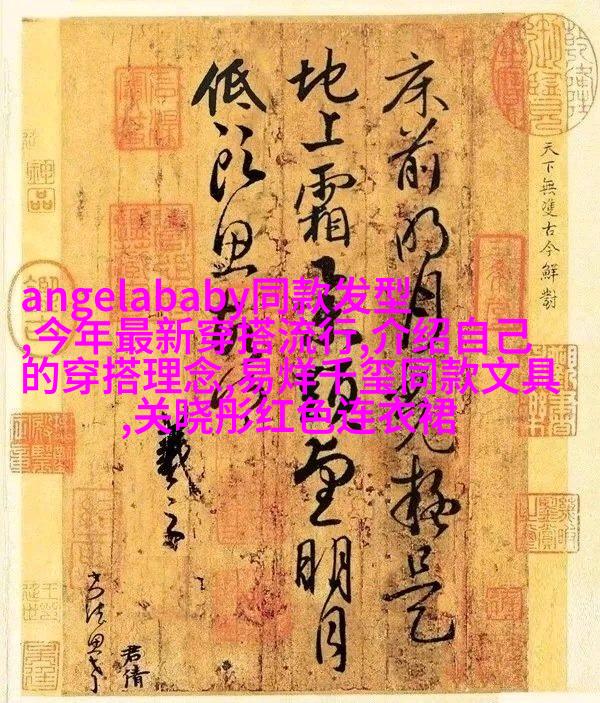 angelababy同款发型
,今年最新穿搭流行,介绍自己
的穿搭理念,易烊千玺同款文具
,关晓彤红色连衣裙
天下無雙古今鮮對
床前明月光疑是
地上霜举头望明月
低头思故乡
羲之
君倩
神品